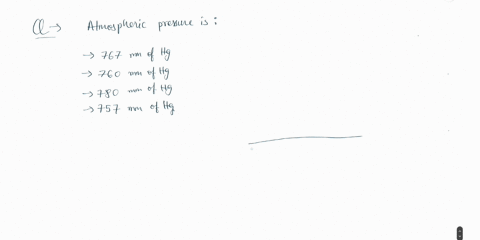 Q → Atmospheric pressure is :
→ 767 mm of Hg
→ 760 mm of Hg
→ 780 mm of Hg
→ 757 mm of Hg